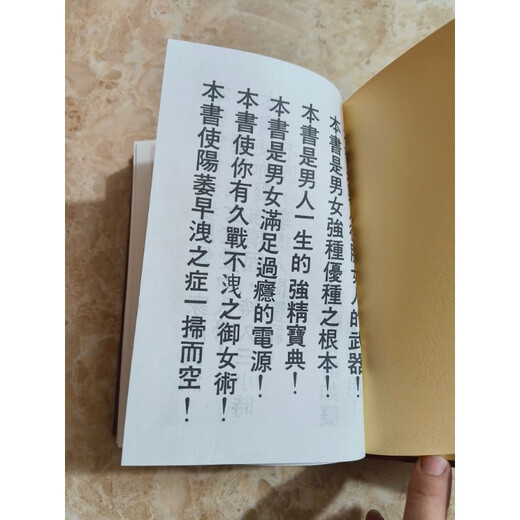 女人的武器！
本書是男女強種優種之根本！
本書是男人一生的強精寶典！
本書是男女滿足過癮的電源！
本書使你有久戰不洩之御女術！
本書使陽萎早洩之症一掃而空！